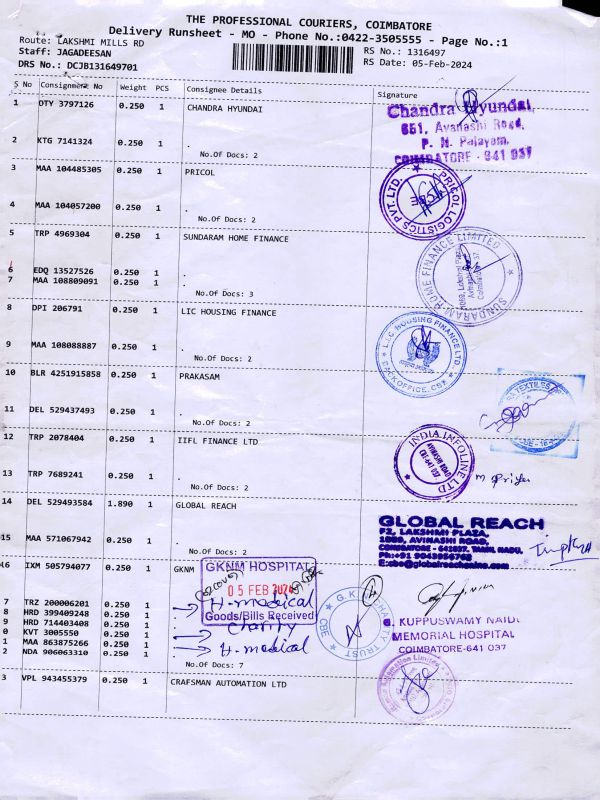 THE PROFESSIONAL COURIERS, COIMBATORE
Delivery Runsheet - MO - Phone No.:0422-3505555 - Page No.:1
Route: LAKSHMI MILLS RD
Staff: JAGADEESAN
DRS No.: DCJB131649701
RS No.: 1316497
RS Date: 05-Feb-2024
S No Consignment No Weight PCS Consignee Details Signature
1 DTY 3797126 0.250 1 CHANDRA HYUNDAI
Chandra Hyundai,
651, Avanashi Road,
P. N. Palayam,
COIMBATORE - 641 037
2 KTG 7141324 0.250 1 .
No.Of Docs: 2
3 MAA 104485305 0.250 1 PRICOL
PRICOL LOGISTICS PVT. LTD.
4 MAA 104057200 0.250 1 .
No.Of Docs: 2
5 TRP 4969304 0.250 1 SUNDARAM HOME FINANCE
SUNDARAM HOME FINANCE LIMITED
6 EDQ 13527526 0.250 1 .
7 MAA 108809091 0.250 1 .
No.Of Docs: 3
8 DPI 206791 0.250 1 LIC HOUSING FINANCE
LIC HOUSING FINANCE LTD.
BACK OFFICE, CBE
9 MAA 108088887 0.250 1 .
No.Of Docs: 2
10 BLR 4251915858 0.250 1 PRAKASAM
11 DEL 529437493 0.250 1 .
No.Of Docs: 2
12 TRP 2078404 0.250 1 IIFL FINANCE LTD
INDIA INFOLINE LTD
AVINASHI ROAD
CBE-641 037
13 TRP 7689241 0.250 1 .
No.Of Docs: 2
14 DEL 529493584 1.890 1 GLOBAL REACH
GLOBAL REACH
F2, LAKSHMI PLAZA,
1089, AVINASHI ROAD,
COIMBATORE - 641037, TAMIL NADU,
15 MAA 571067942 0.250 1 .
No.Of Docs: 2
16 IXM 505794077 0.250 1 GKNM
GKNM HOSPITAL
05 FEB 2024
Goods/Bills Received
7 TRZ 200006201 0.250 1 H-medical
8 HRD 399409248 0.250 1
9 HRD 714403408 0.250 1 charity
0 KVT 3005550 0.250 1
1 MAA 863875266 0.250 1 H.medical
2 NDA 906063310 0.250 1 .
No.Of Docs: 7
G. KUPPUSWAMY NAIDU
MEMORIAL HOSPITAL
COIMBATORE-641 037
3 VPL 943455379 0.250 1 CRAFSMAN AUTOMATION LTD